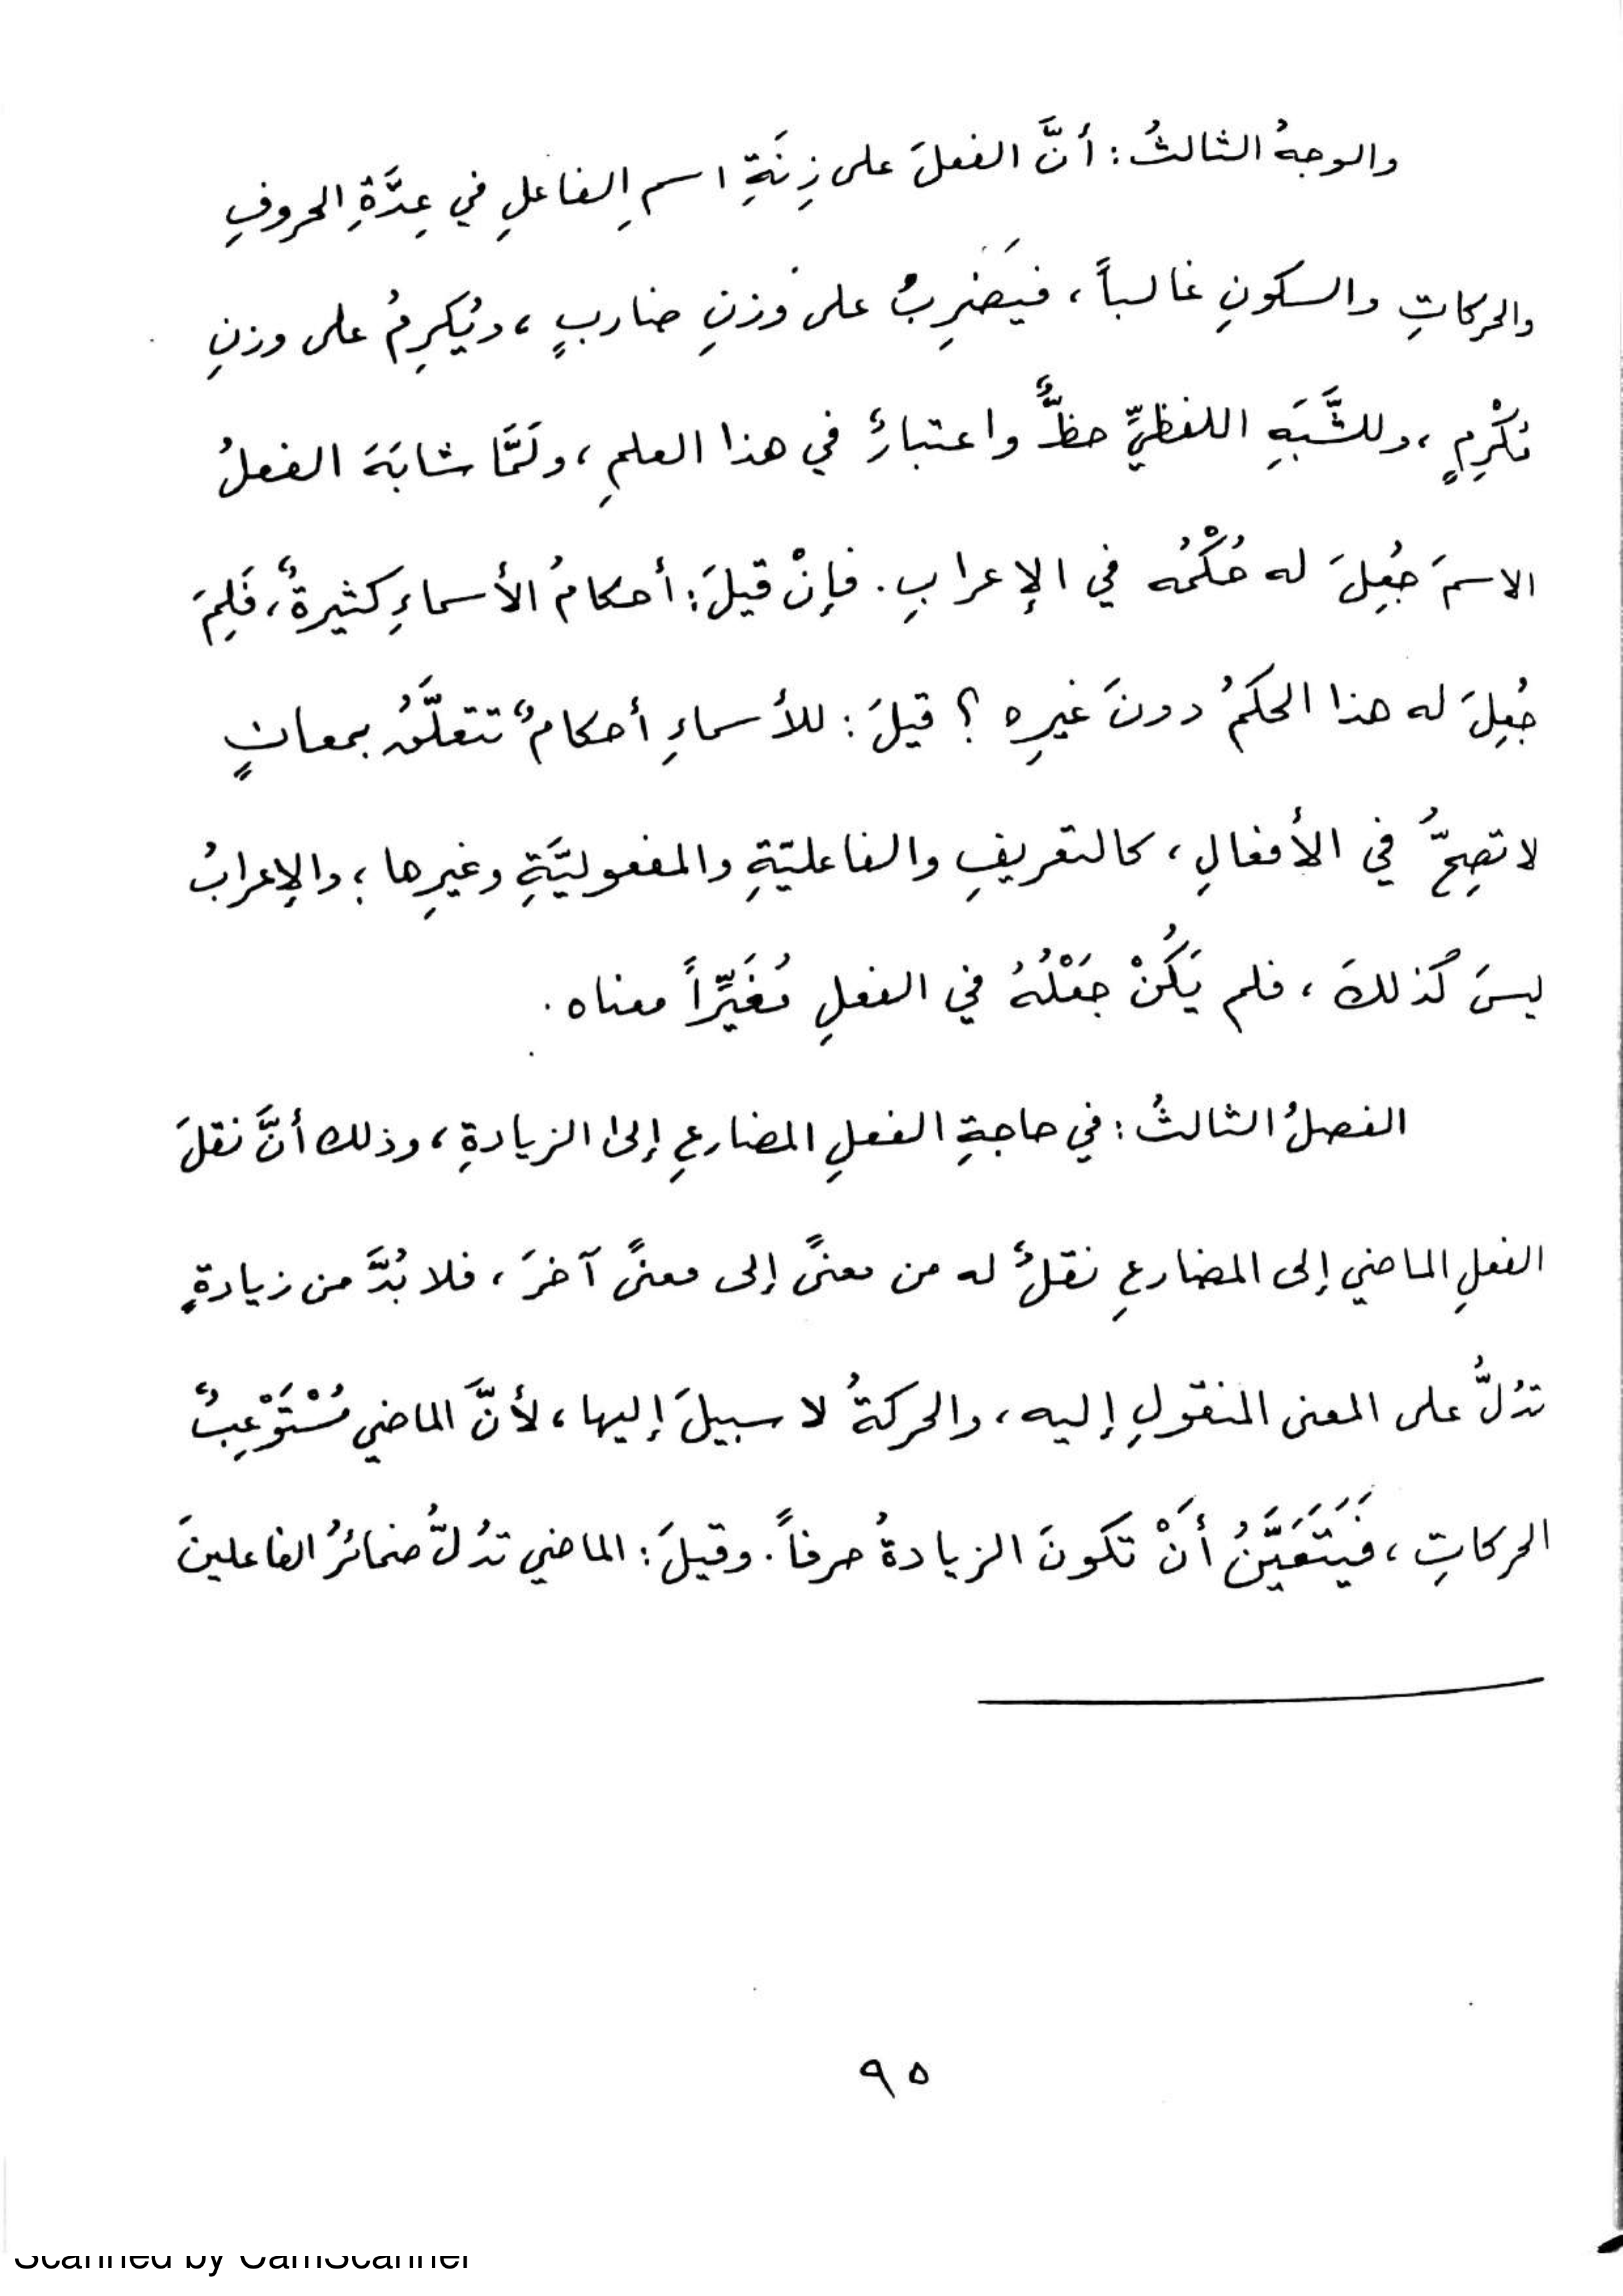 والوجهُ الثالثُ: أنَّ الفعلَ على زِنَةِ اسمِ الفاعلِ في عِدَّةِ الحروفِ
والحركاتِ والسكونِ غالباً، فيَضرِبُ على وَزنِ ضاربٍ، ويُكرِمُ على وزنِ
مُكْرِمٍ، وللشَّبَهِ اللفظيِّ حظٌّ واعتبارٌ في هذا العلمِ، ولَمَّا شابَهَ الفعلُ
الاسمَ جُعِلَ له حُكْمُه في الإعرابِ. فإنْ قيلَ: أحكامُ الأسماءِ كثيرةٌ، فَلِمَ
جُعِلَ له هذا الحكمُ دونَ غيرِه؟ قيلَ: للأسماءِ أحكامٌ تتعلَّقُ بمعانٍ
لا تصِحُّ في الأفعالِ، كالتعريفِ والفاعليّةِ والمفعوليَّةِ وغيرِها؛ والإعرابُ
ليسَ كَذلكَ، فلم يَكُنْ جَعْلُهُ في الفعلِ مُغَيِّراً معناه.
الفصلُ الثالثُ: في حاجةِ الفعلِ المضارعِ إلى الزيادةِ، وذلك أنَّ نقلَ
الفعلِ الماضي إلى المضارعِ نقلٌ له من معنىً إلى معنىً آخرَ، فلا بُدَّ من زيادةٍ
تدُلُّ على المعنى المنقولِ إليه، والحركةُ لا سبيلَ إليها، لأنَّ الماضي مُسْتَوْعِبٌ
الحركاتِ، فَيَتَعَيَّنُ أَنْ تكونَ الزيادةُ حرفاً. وقيلَ: الماضي تدُلُّ ضمائرُ الفاعلينَ
٩٥
Scanned by CamScanner